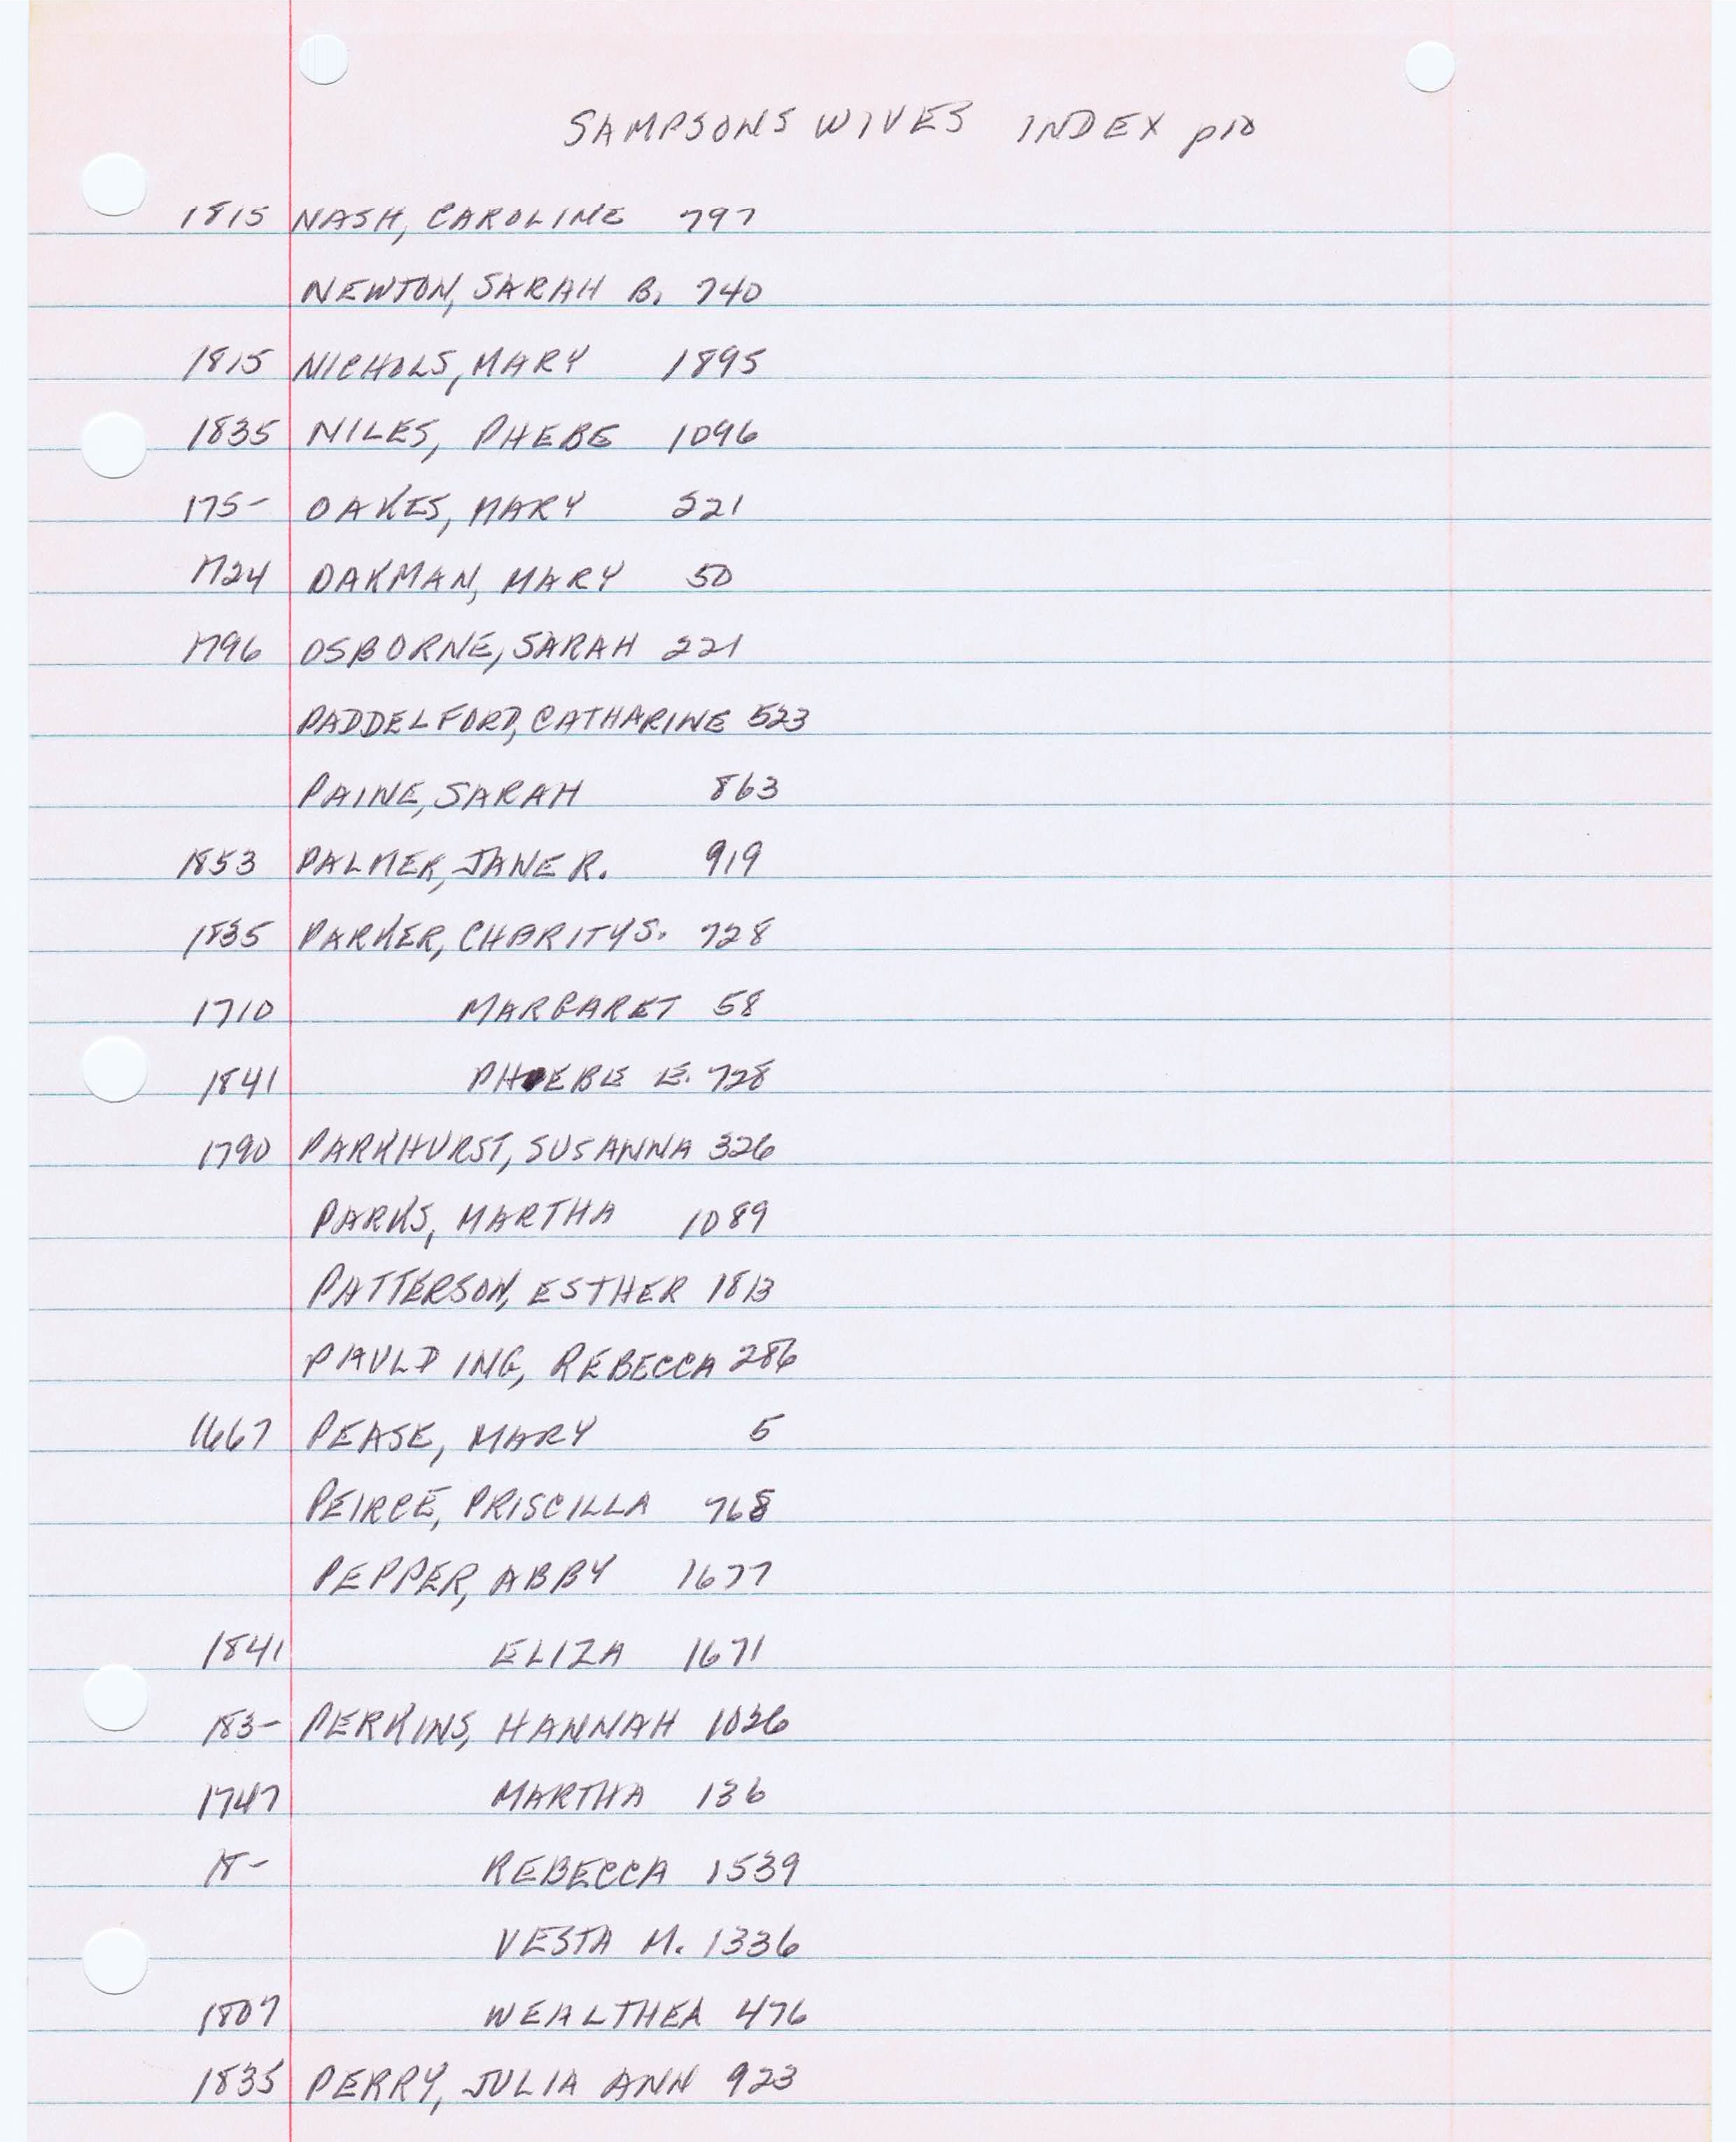 SAMPSONS WIVES INDEX p10
1815 NASH, CAROLINE 797
NEWTON, SARAH B. 740
1815 NICHOLS, MARY 1895
1835 NILES, PHEBE 1096
175- OAKES, MARY 221
1724 OAKMAN, MARY 50
1796 OSBORNE, SARAH 221
PADDELFORD, CATHARINE 523
PAINE, SARAH 863
1853 PALMER, JANE R. 919
1835 PARKER, CHARITY S. 728
1710 MARGARET 58
1841 PHEBE E. 728
1790 PARKHURST, SUSANNA 326
PARKS, MARTHA 1089
PATTERSON, ESTHER 1813
PAULDING, REBECCA 286
1667 PEASE, MARY 5
PEIRCE, PRISCILLA 768
PEPPER, ABBY 1677
1841 ELIZA 1671
183- PERKINS, HANNAH 1026
1747 MARTHA 136
18- REBECCA 1539
VESTA M. 1336
1807 WEALTHEA 476
1835 PERRY, JULIA ANN 923